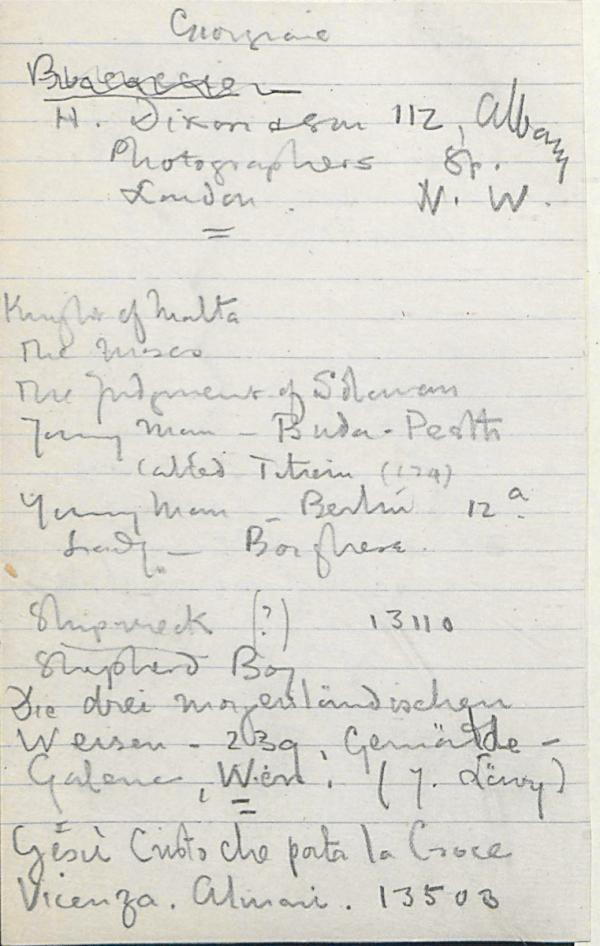 Giorgione
H. Dixon & Son 112, Albany
Photographers St.
London. N. W.
Knight of Malta
The Moses
The Judgment of Solomon
Young Man – Buda-Pesth
called Titian (174)
Young Man – Berlin 12a.
Lady – Borghese.
Shipwreck (?) 13110
Shepherd Boy
Die drei morgenländischen
Weisen – 239, Gemälde-
Galerie, Wien. (J. Löwy)
Gesù Cristo che porta la Croce
Vicenza. Alinari. 13503